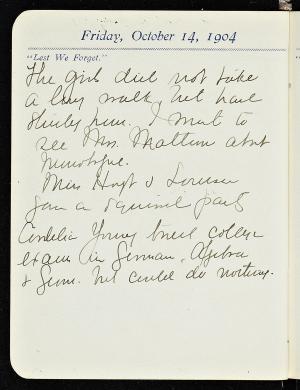 Friday, October 14, 1904
"Lest We Forget."
The girls did not take
a long walk, but had
him. I went to
see Mrs. about
Miss Hoyt &
gave a squirrel party
Cordelia Young tried college
exams in German, Algebra
& Geom. but could do nothing.